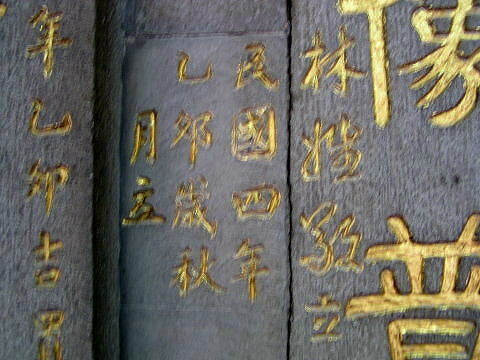 普
林敬立
民國四年
乙卯歲秋
月立
年乙卯吉